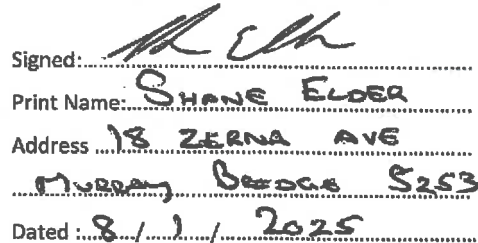 Signed:
Print Name: SHANE ELDER
Address 18 ZERNA AVE
MURRAY BRIDGE 5253
Dated : 8 / 1 / 2025